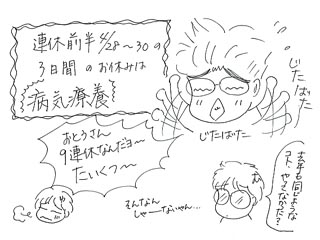 連休前半4/28〜30の
3日間のお休みは
病気療養
じたばた
じたばた
おとうさん
9連休なんだヨ〜
たいくつ〜
そんなん
しゃーないやん…
去年も同じような
コト、やってなかった?